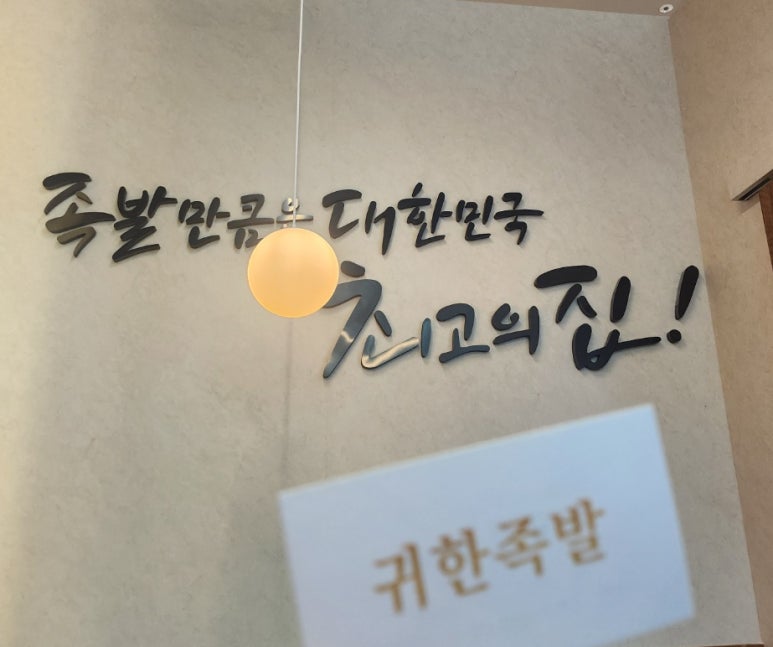 족발만큼은 대한민국
최고의집!
귀한족발